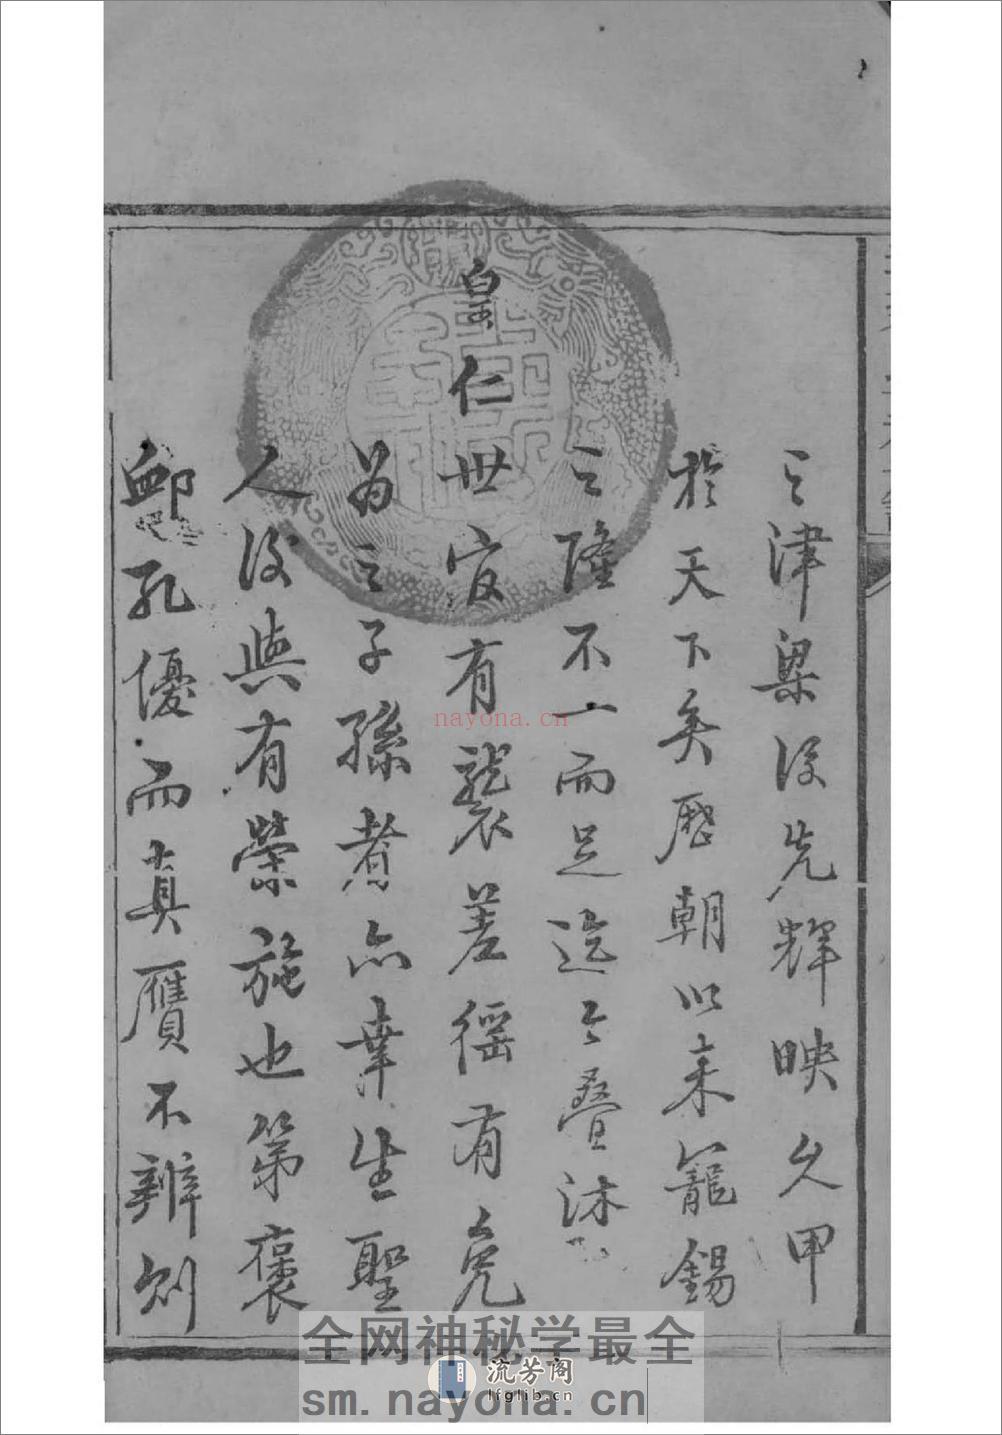 之津梁後先輝映久甲
於天下矣歷朝以來寵錫
之隆不一而足迄今疊沐
皇仁世官有襲差徭有免
為之子孫者亦幸生聖
人後與有榮施也第褒
卹孔優而真贗不辨則
nayona.cn
全网神秘学最全
流芳阁
lfglib.cn
sm.nayona.cn